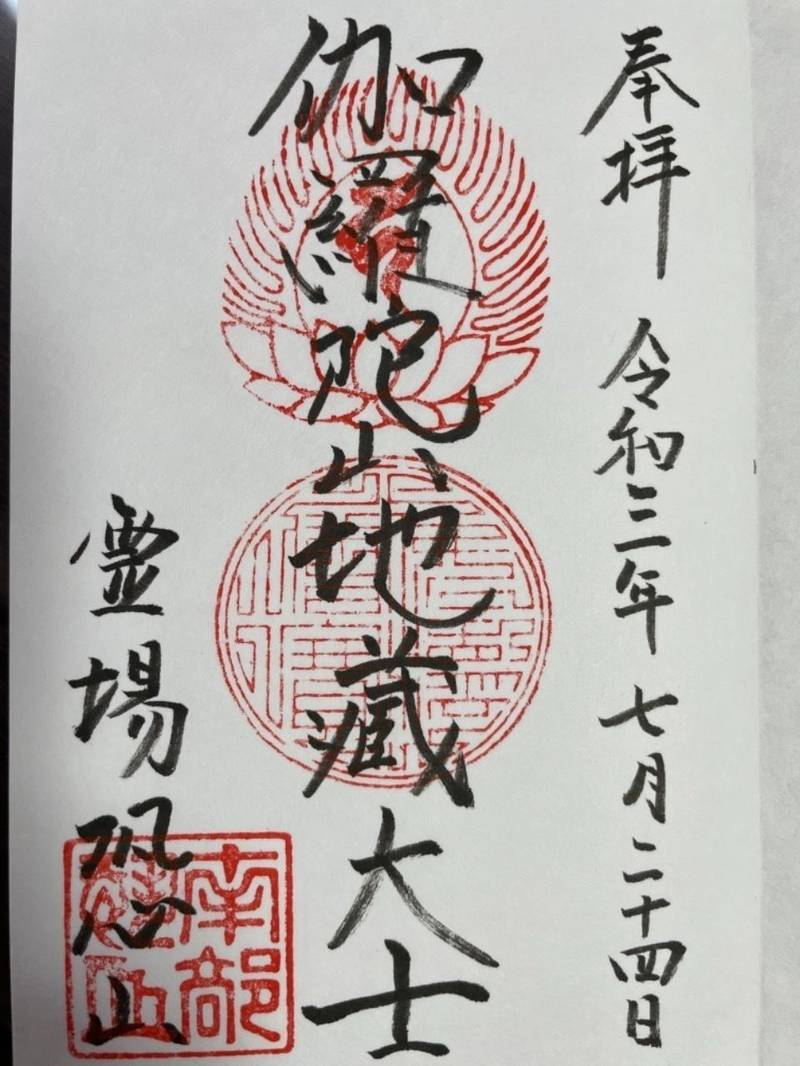 奉拝 令和三年七月二十四日
伽羅陀山地蔵大士
霊場恐山
南部